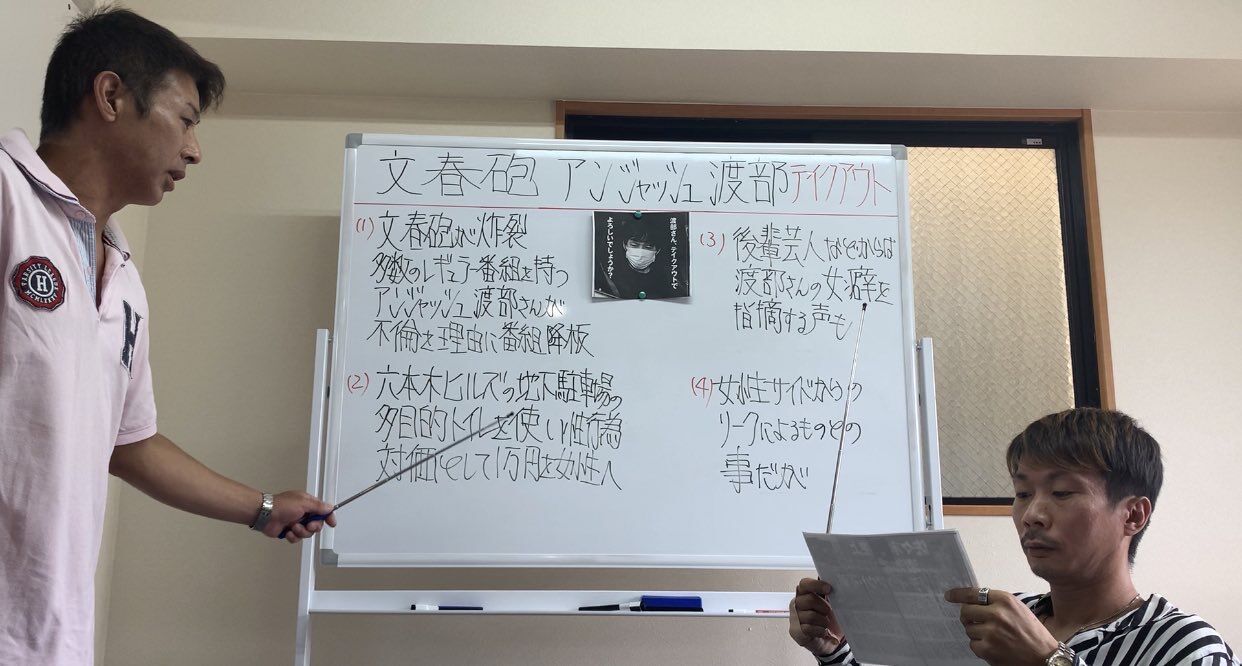 文春砲 アンジャッシュ渡部テイクアウト
(1) 文春砲が炸裂
多数のレギュラー番組を持つ
アンジャッシュ渡部さんが
不倫を理由に番組降板
(2) 六本木ヒルズの地下駐車場の
多目的トイレを使い性行為
対価として1万円を女性へ
渡部さん、テイクアウトで
よろしいでしょうか?
(3) 後輩芸人などからは
渡部さんの女癖を
指摘する声も
(4) 女性サイドからの
リークによるものとの
事だが
H
H